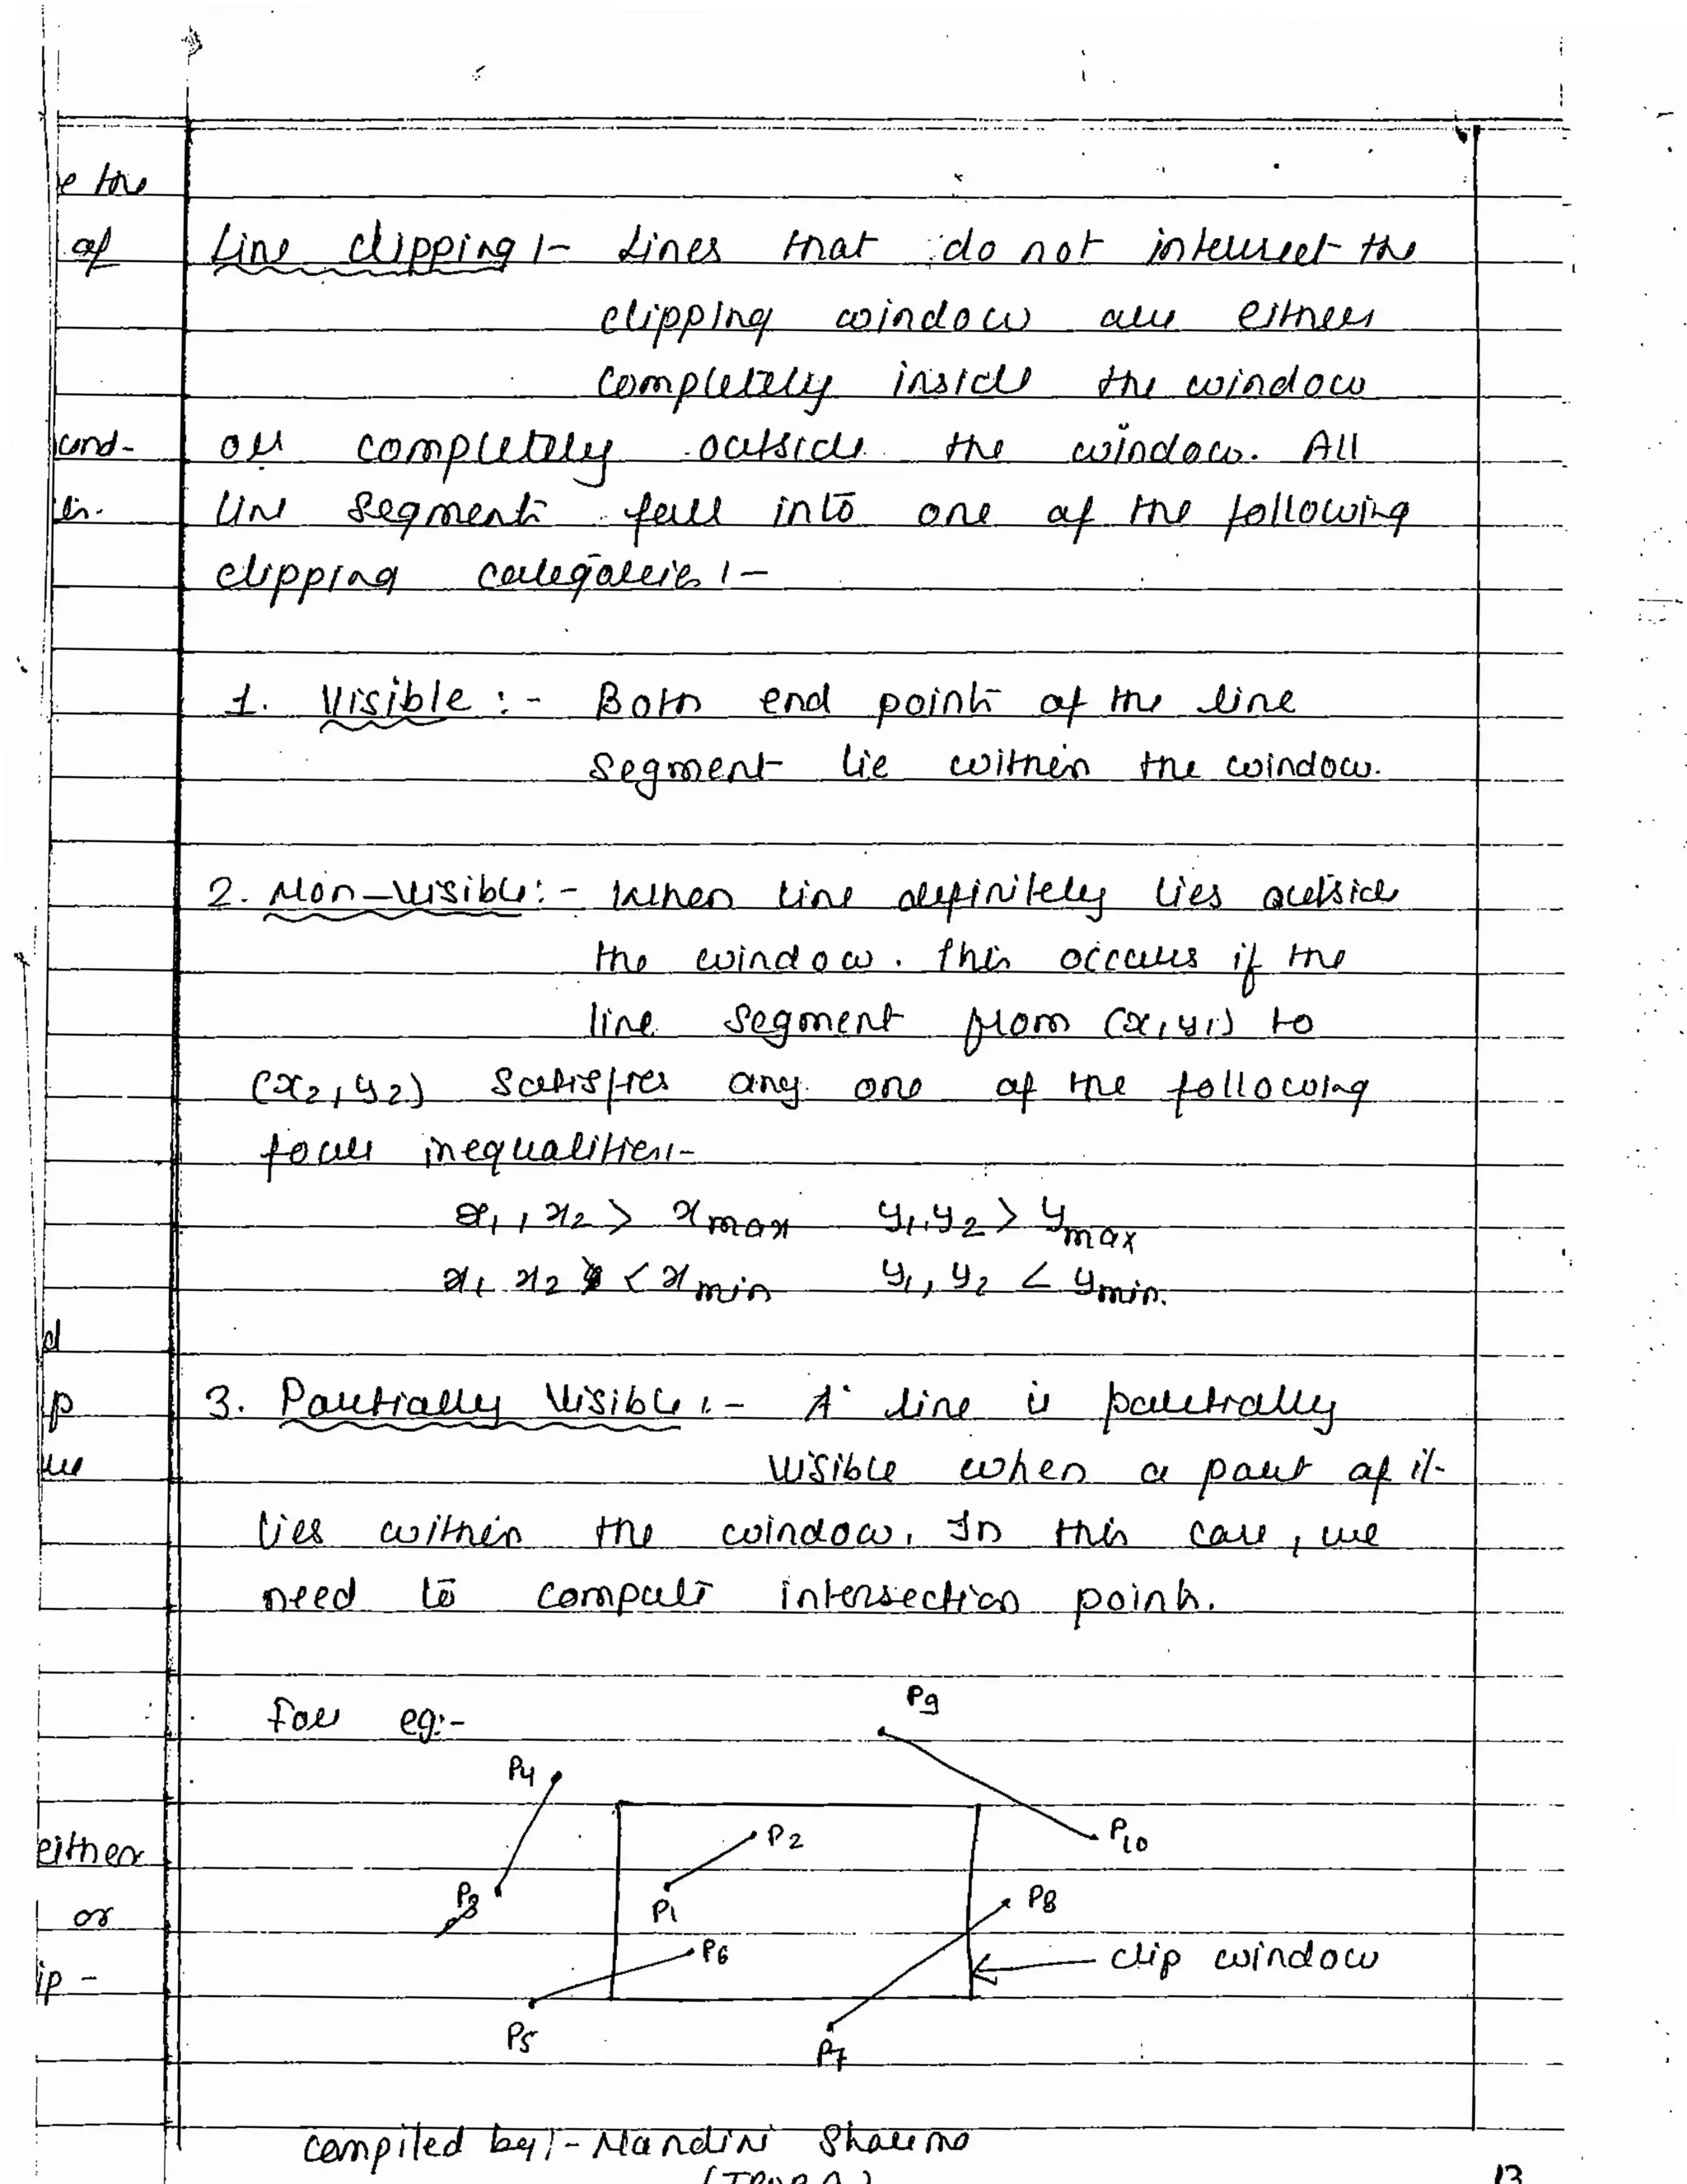 e the
of
cond-
d
p
either
or
ip -
Line clipping :- Lines that do not intersect the
clipping window are either
completely inside the window
or completely outside the window. All
line segments fall into one of the following
clipping categories :-
1. Visible :- Both end points of the line
segment lie within the window.
2. Non-visible :- When line definitely lies outside
the window. This occurs if the
line segment from (x1 y1) to
(x2, y2) satisfies any one of the following
four inequalities:-
x1, x2 > xmax y1, y2 > ymax
x1 x2 < xmin y1, y2 < ymin.
3. Partially Visible :- A line is partially
visible when a part of it
lies within the window. In this case, we
need to compute intersection points.
For eg:-
P9
P4
P2
P10
P3
P1
P8
P6
clip window
P5
P7
Compiled by :- Nandini Sharma
13